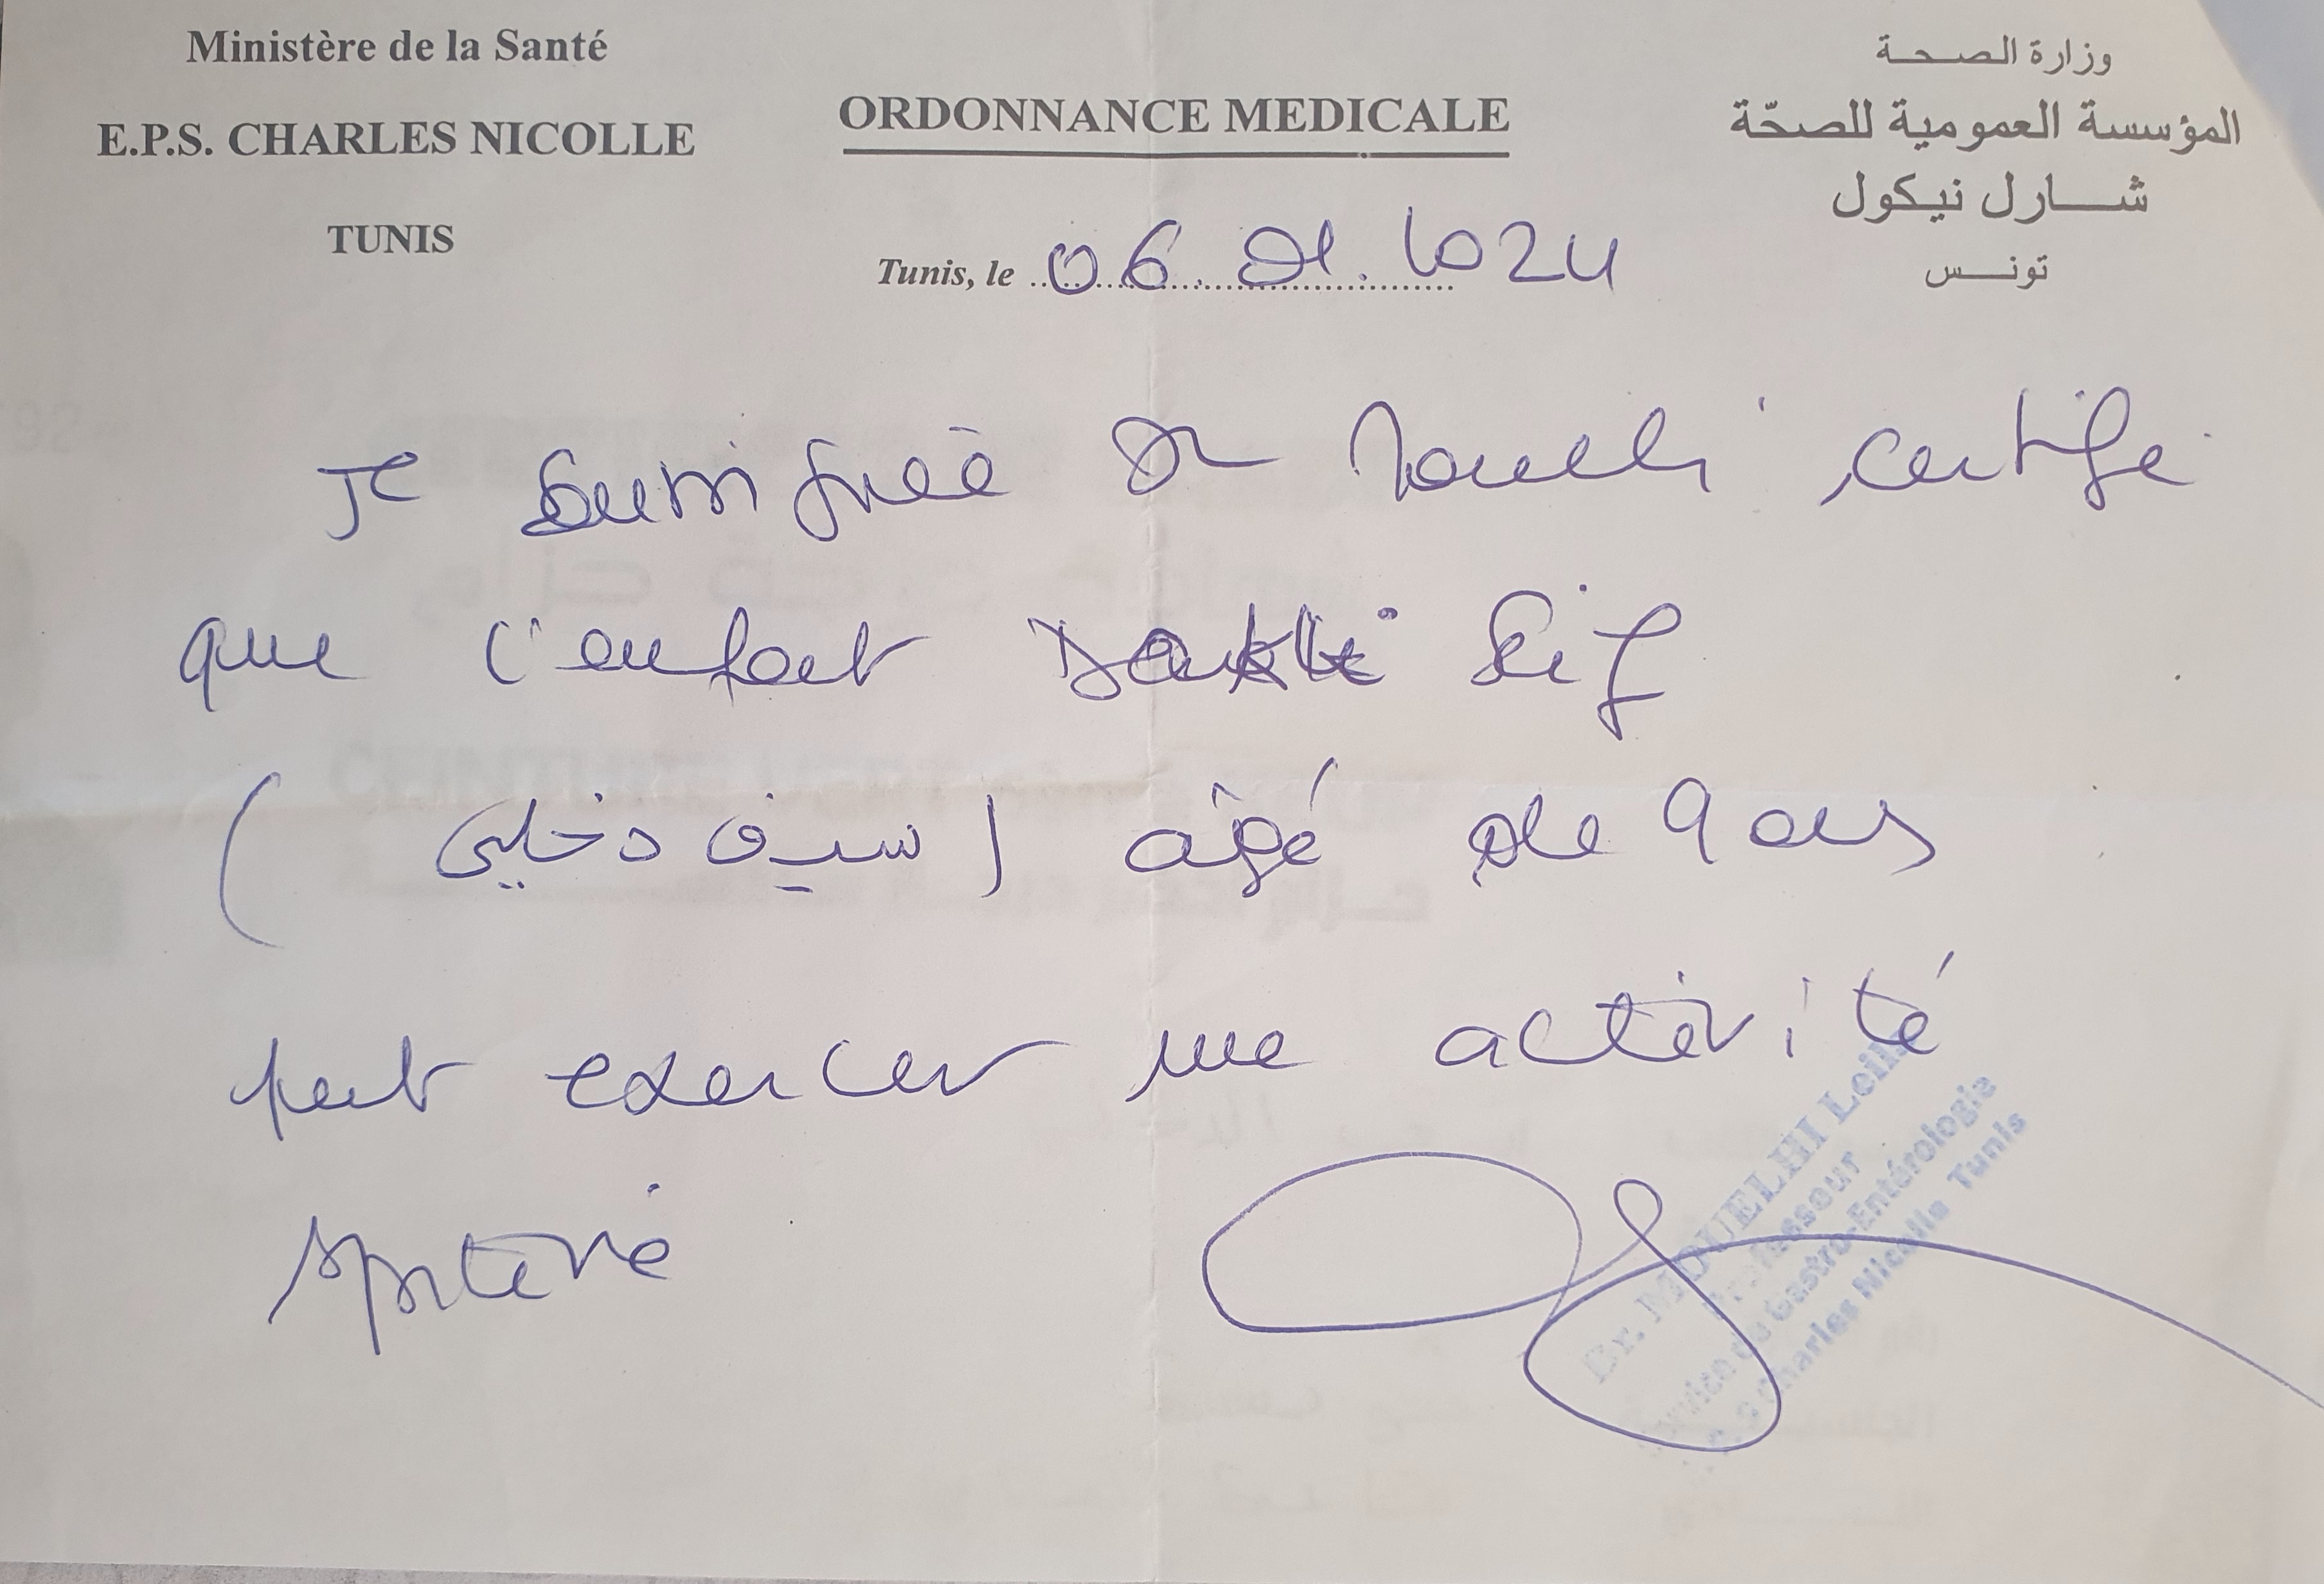 Ministère de la Santé
E.P.S. CHARLES NICOLLE
TUNIS
ORDONNANCE MEDICALE
وزارة الصحة
المؤسسة العمومية للصحّة
شارل نيكول
تونس
Tunis, le 06. 01. 2024
Je soussignée Dr Mouelhi certifie
que l'enfant Dakhli Seif
(سيف دخيلي) âgé de 9 ans
peut exercer une activité
sportive
Dr. MOUELHI Leila
Professeur
Service de Gastro-Entérologie
Charles Nicolle Tunis